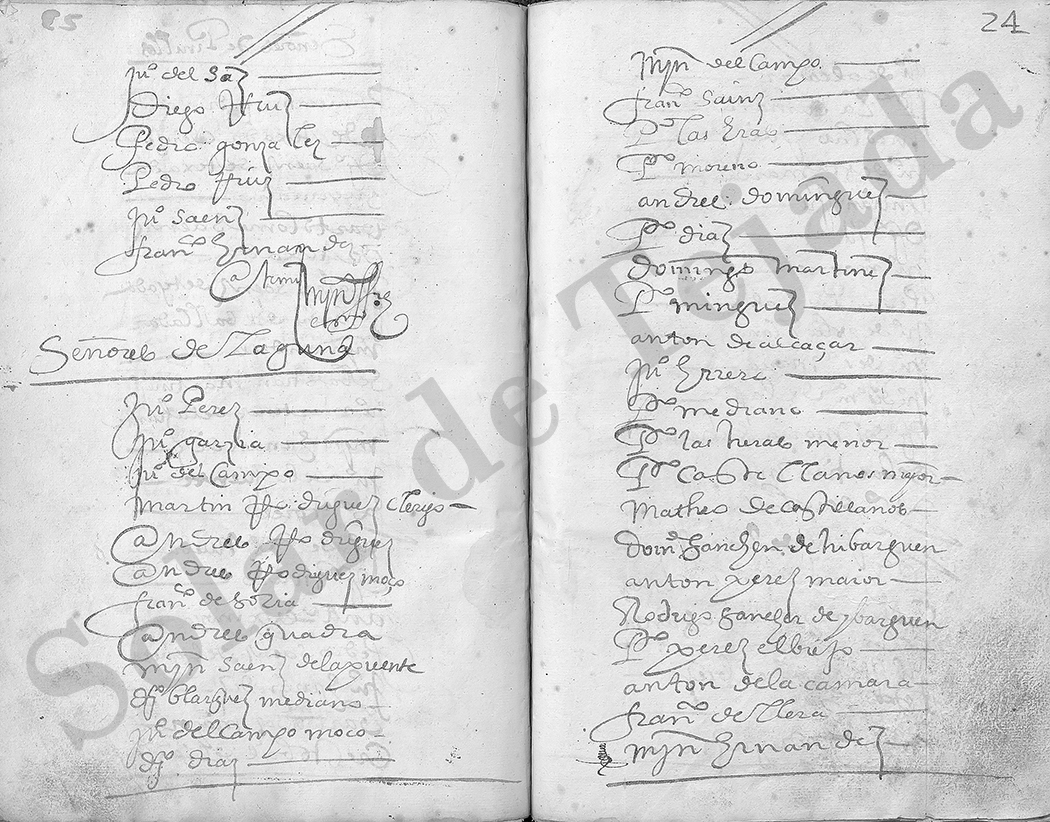 23
Ju⁰ del Saz
Diego Fruz
Pedro gonzalez
Pedro Fruiz
Ju⁰ saenz
fran^co hernandez
Señores de Laguna
Ju⁰ Perez
Ju⁰ garzia
Ju⁰ del Campo
martin Rodriguez clerigo
andres Rodriguez
andres Rodriguez moço
fran^co de Soria
andres guadra
mjn saenz delapuente
dj⁰ blazquez mediano
ju⁰ del Campo moco
dj⁰ diaz
24
mjn del Campo
fran^co saenz
P⁰ las heras
P⁰ moreno
andres dominguez
P⁰ diaz
domingo martinez
P⁰ minguez
anton de alcaçar
Ju⁰ Errera
P⁰ mediano
P⁰ las heras menor
P⁰ castellanos mayor
Matheo de castellanos
dom⁰ sanchen de hibarguen
anton perez maior
Rodrigo sanchen de ybarguen
P⁰ perez el biejo
anton dela camara
fran^co de Llera
mjn hernandez
Solar de Tejada